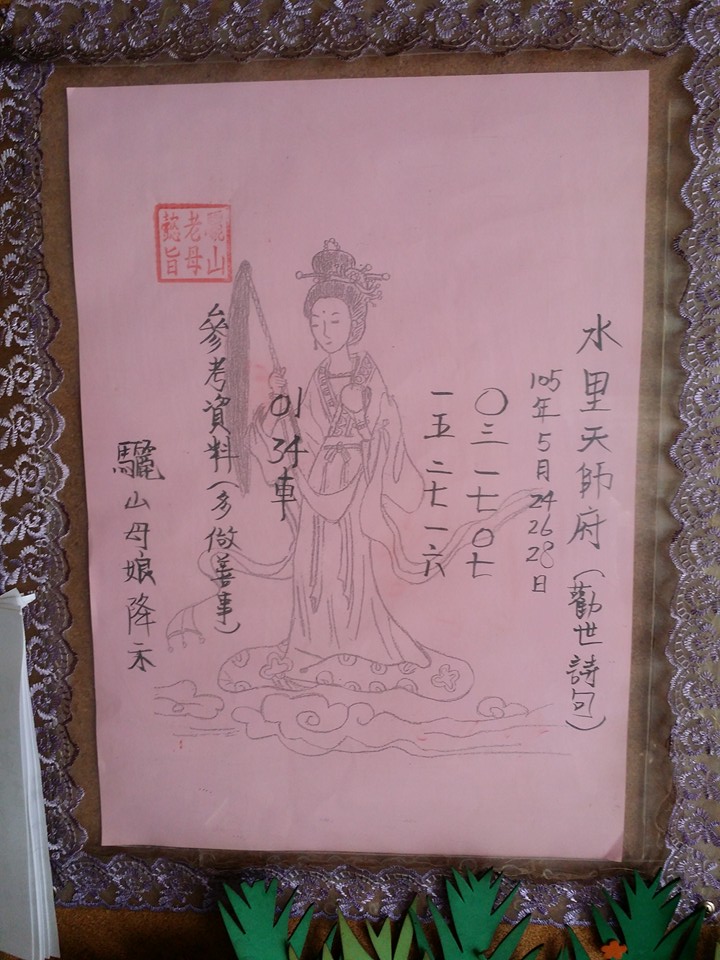 水里天師府(勸世詩句)
105年5月24 26 28日
〇三 一七 〇七
一五 二七 一六
01 34車
參考資料(多做善事)
驪山母娘降示
驪山
老母
懿旨